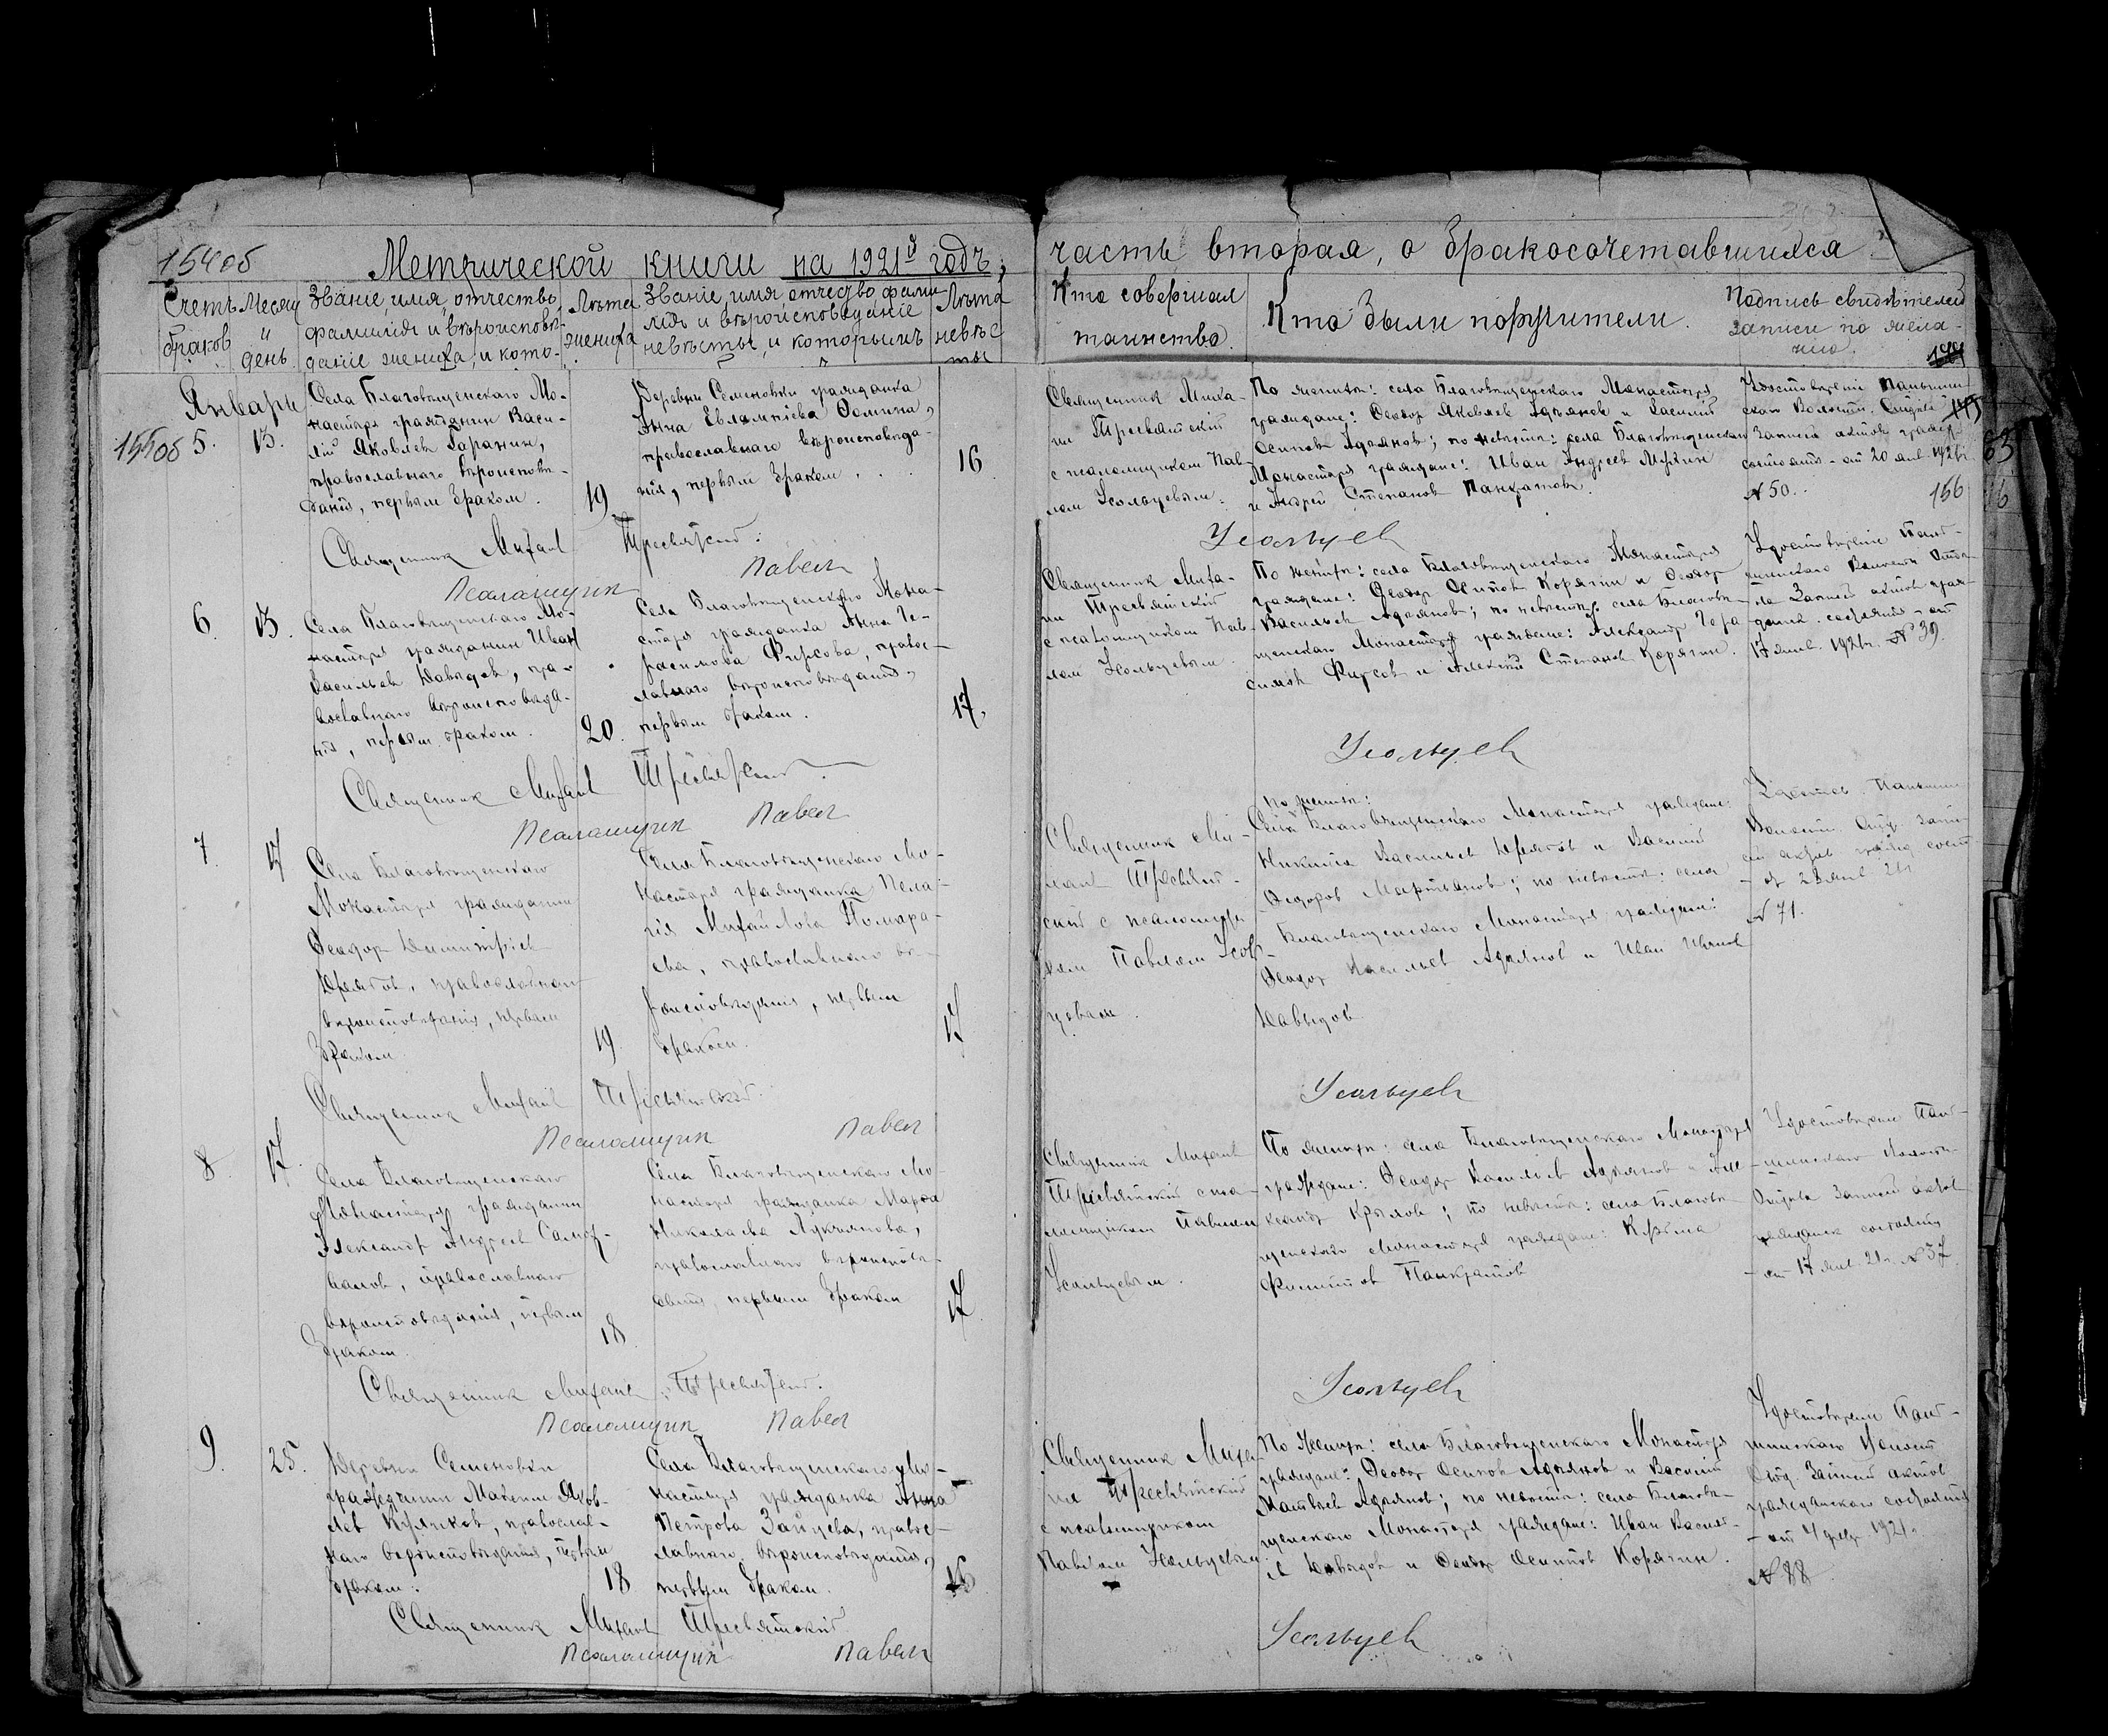 154об
Метрической книги на 1921й годъ, часть вторая, о бракосочетавшихся.
Счетъ браков
Месяц и день
Званіе, имя, отчество,
фамилія и вѣроисповѣ-
даніе жениха, и кото-
Лѣта
жениха
Званіе, имя, отчество, фами-
лія и вѣроисповѣданіе
невѣсты, и которымъ
Лѣта
невѣс
ты
Кто совершал
таинство
Кто были поручители.
Подпись свидѣтелей
записи по жела-
нию.
144
Январь
155об
5.
13.
Села Благовѣщенскаго Мо-
настыря гражданин Васи-
лій Яковлев Гаранин,
православнаго вѣроисповѣ-
данія, первым браком.
19
Деревни Семеновки гражданка
Анна Евлампіева Фомина,
православнаго вѣроисповѣда-
нія, первым браком.
16
Священник Миха-
ил Тресвятский
с псаломщиком Пав-
лом Усольцевым.
По женихѣ: села Благовѣщенскаго Монастыря
граждане: Феодор Яковлев Адоянов и Василій
Осипов Адоянов; по невѣстѣ: села Благовѣщенскаго
Монастыря граждане: Иван Андреев
и Андрей Степанов Панкратов.
Удостовѣреніе Паньшин-
скаго Волостн. Отдѣла
Записи актов гражд.
состоянія - от 20 янв. 1921г.
№ 50.
145
83
156
Священник Михаил Тресвятский.
Псаломщик Павел Усольцев
6.
13.
Села Благовѣщенскаго Мо-
настыря гражданин Иван
Васильев Давыдов, пра-
вославнаго вѣроисповѣда-
нія, первым браком.
20.
Села Благовѣщенскаго Мона-
стыря гражданка Анна Ге-
расимова Фирсова, правос-
лавнаго вѣроисповѣданія,
первым браком.
17.
Священник Миха-
ил Тресвятский
с псаломщиком Пав-
лом Усольцевым.
По женихѣ: села Благовѣщенскаго Монастыря
граждане: Феодор Осипов Корягин и Феодор
Васильев Адоянов; по невѣстѣ: села Благовѣ-
щенскаго Монастыря граждане: Александр Гера-
симов Фирсов и Алексѣй Степанов Корягин.
Удостовѣреніе Пань-
шинскаго Волостн. Отдѣ-
ла Записи актов граж-
данск. состоянія - от
17 янв. 1921г. № 39.
Священник Михаил Тресвятский.
Псаломщик Павел Усольцев
7.
17
Села Благовѣщенскаго
Монастыря гражданин
Феодор Димитріев
православнаго
вѣроисповѣданія, первым
браком.
19
Села Благовѣщенскаго Мо-
настыря гражданка Пела-
гія Михайлова
православнаго вѣ-
роисповѣданія, первым
браком.
17
Священник Ми-
хаил Тресвят-
ский с псаломщи-
ком Павлом Усоль-
цевым.
По женихѣ:
Села Благовѣщенскаго Монастыря граждане:
Никита Васильев и Василій
Феодоров Мартьянов; по невѣстѣ: села
Благовѣщенскаго Монастыря граждане:
Феодор Васильев Адоянов и Иван
Давыдов.
Удостов. Паньшин.
Волостн. Отд. запи-
си актов гражд. сост.
от 23 янв. 21г.
№ 71.
Священник Михаил Тресвятский.
Псаломщик Павел Усольцев
8.
17.
Села Благовѣщенскаго
Монастыря гражданин
Александр Андреев
православнаго
вѣроисповѣданія, первым
браком.
18
Села Благовѣщенскаго Мо-
настыря гражданка Марѳа
Николаева Лукьянова,
православнаго вѣроисповѣ-
данія, первым браком
17
Священник Михаил
Тресвятский с пса-
ломщиком Павлом
Усольцевым.
По женихѣ: села Благовѣщенскаго Монастыря
граждане: Феодор Васильев Адоянов и Але-
ксандр Крылов; по невѣстѣ: села Благовѣ-
щенскаго Монастыря граждане: Кузьма
Филиппов Панкратов
Удостовѣреніе Пань-
шинскаго Волостн.
Отдѣла Записи актов
гражданск. состоянія
- от 17 янв. 21г. № 37.
Священник Михаил Тресвятский.
Псаломщик Павел Усольцев
9.
25.
Деревни Семеновки
гражданин Максим Яков-
лев Куликов, православ-
наго вѣроисповѣданія, первым
браком.
18
Села Благовѣщенскаго Мо-
настыря гражданка Анна
Петрова Зайцева, правос-
лавнаго вѣроисповѣданія,
первым браком.
16
Священник Миха-
ил Тресвятский
с псаломщиком
Павлом Усольцевым
По Женихѣ: села Благовѣщенскаго Монастыря
граждане: Феодор Осипов Адоянов и Василій
Матвѣев Адоянов; по невѣстѣ: села Благовѣ-
щенскаго Монастыря граждане: Иван Василь-
ев Давыдов и Феодор Осипов Корягин.
Удостовѣреніе Пань-
шинскаго Волостн.
Отд. Записи актов
гражданскаго состоянія
- от 4 февр. 1921г.
№ 88
Священник Михаил Тресвятский
Псаломщик Павел Усольцев